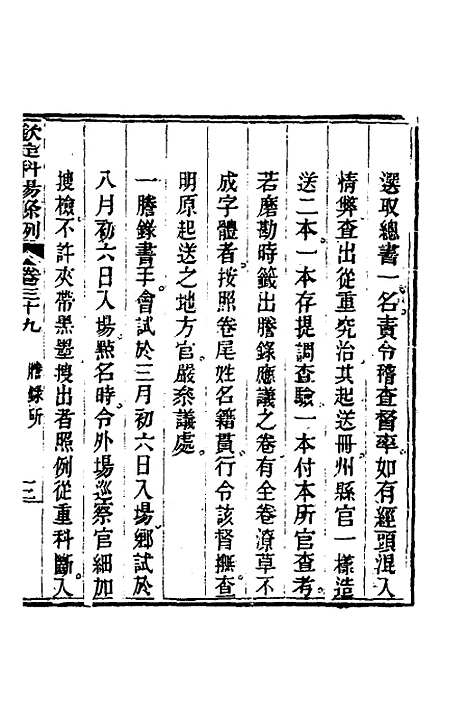 選取總書一名責令稽查督率如有經頭混入
情弊查出從重究治其起送冊州縣官一樣造
送二本一本存提調查驗一本付本所官查考
若磨勘時籤出謄錄應議之卷有全卷潦草不
成字體者按照卷尾姓名籍貫行令該督撫查
明原起送之地方官嚴叅議處
一謄錄書手會試於三月初六日入場鄉試於
八月初六日入場點名時令外場巡察官細加
搜檢不許夾帶黑墨搜出者照例從重科斷入
欽定科場條例 卷三十九 謄錄所 二